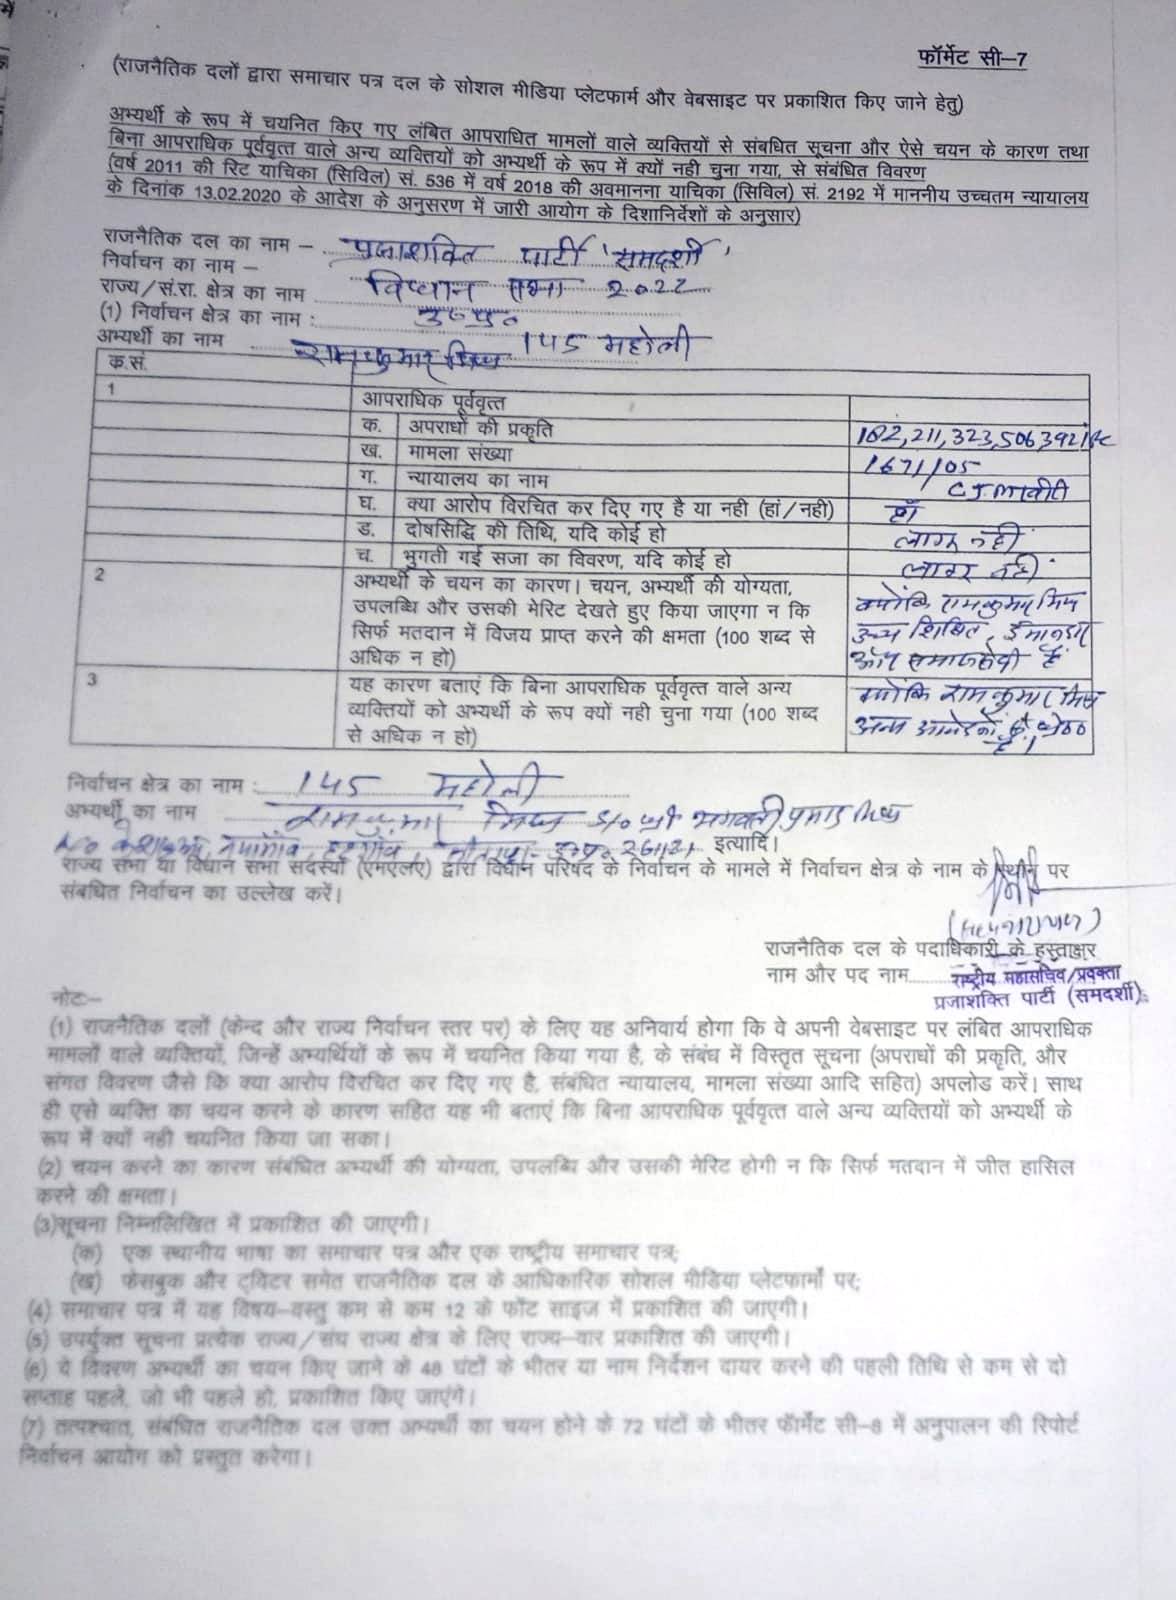 फॉर्मेट सी–7
(राजनैतिक दलों द्वारा समाचार पत्र दल के सोशल मीडिया प्लेटफार्म और वेबसाइट पर प्रकाशित किए जाने हेतु)
अभ्यर्थी के रूप में चयनित किए गए लंबित आपराधित मामलों वाले व्यक्तियों से संबधित सूचना और ऐसे चयन के कारण तथा
बिना आपराधिक पूर्ववृत्त वाले अन्य व्यक्तियों को अभ्यर्थी के रूप में क्यों नही चुना गया, से संबंधित विवरण
(वर्ष 2011 की रिट याचिका (सिविल) सं. 536 में वर्ष 2018 की अवमानना याचिका (सिविल) सं. 2192 में माननीय उच्चतम न्यायालय
के दिनांक 13.02.2020 के आदेश के अनुसरण में जारी आयोग के दिशानिर्देशों के अनुसार)
राजनैतिक दल का नाम – प्रजाशक्ति पार्टी 'समदर्शी'
निर्वाचन का नाम – विधान सभा 2022
राज्य/सं.रा. क्षेत्र का नाम उ०प्र०
(1) निर्वाचन क्षेत्र का नाम : 145 महोली
अभ्यर्थी का नाम रामकुमार मिश्र
क.सं.
1 आपराधिक पूर्ववृत्त
क. अपराधों की प्रकृति 182,211,323,506,392
ख. मामला संख्या 1671/05
ग. न्यायालय का नाम
घ. क्या आरोप विरचित कर दिए गए है या नही (हां/नही) हाँ
ड. दोषसिद्धि की तिथि, यदि कोई हो लागू नहीं
च. भुगती गई सजा का विवरण, यदि कोई हो लागू नहीं
2 अभ्यर्थी के चयन का कारण। चयन, अभ्यर्थी की योग्यता, क्योंकि रामकुमार मिश्र
उपलब्धि और उसकी मेरिट देखते हुए किया जाएगा न कि उच्च शिक्षित, ईमानदार
सिर्फ मतदान में विजय प्राप्त करने की क्षमता (100 शब्द से और समाजसेवी हैं
अधिक न हो)
3 यह कारण बताएं कि बिना आपराधिक पूर्ववृत्त वाले अन्य क्योंकि रामकुमार मिश्र
व्यक्तियों को अभ्यर्थी के रूप क्यों नही चुना गया (100 शब्द अन्य आवेदकों से श्रेष्ठ
से अधिक न हो) हैं।
निर्वाचन क्षेत्र का नाम : 145 महोली
अभ्यर्थी का नाम रामकुमार मिश्र S/o श्री भगवती प्रसाद मिश्र
सीतापुर उ०प्र० 261121 इत्यादि।
राज्य सभा या विधान सभा सदस्यों (एमएलए) द्वारा विधान परिषद के निर्वाचन के मामले में निर्वाचन क्षेत्र के नाम के स्थान पर
संबधित निर्वाचन का उल्लेख करें।
राजनैतिक दल के पदाधिकारी के हस्ताक्षर
नाम और पद नाम राष्ट्रीय महासचिव/प्रवक्ता
प्रजाशक्ति पार्टी (समदर्शी)
नोटः–
(1) राजनैतिक दलों (केन्द और राज्य निर्वाचन स्तर पर) के लिए यह अनिवार्य होगा कि वे अपनी वेबसाइट पर लंबित आपराधिक
मामलों वाले व्यक्तियों, जिन्हें अभ्यर्थियों के रूप में चयनित किया गया है, के संबंध में विस्तृत सूचना (अपराधों की प्रकृति, और
संगत विवरण जैसे कि क्या आरोप विरचित कर दिए गए है, संबंधित न्यायालय, मामला संख्या आदि सहित) अपलोड करें। साथ
ही एसे व्यक्ति का चयन करने के कारण सहित यह भी बताएं कि बिना आपराधिक पूर्ववृत्त वाले अन्य व्यक्तियों को अभ्यर्थी के
रूप में क्यों नही चयनित किया जा सका।
(2) चयन करने का कारण संबंधित अभ्यर्थी की योग्यता, उपलब्धि और उसकी मेरिट होगी न कि सिर्फ मतदान में जीत हासिल
करने की क्षमता।
(3)सूचना निम्नलिखित में प्रकाशित की जाएगी।
(क) एक स्थानीय भाषा का समाचार पत्र और एक राष्ट्रीय समाचार पत्र;
(ख) फेसबुक और ट्विटर समेत राजनैतिक दल के आधिकारिक सोशल मीडिया प्लेटफार्मों पर;
(4) समाचार पत्र में यह विषय–वस्तु कम से कम 12 के फोंट साइज में प्रकाशित की जाएगी।
(5) उपर्युक्त सूचना प्रत्येक राज्य/संघ राज्य क्षेत्र के लिए राज्य–वार प्रकाशित की जाएगी।
(6) ये विवरण अभ्यर्थी का चयन किए जाने के 48 घंटों के भीतर या नाम निर्देशन दायर करने की पहली तिथि से कम से दो
सप्ताह पहले, जो भी पहले हो, प्रकाशित किए जाएंगे।
(7) तत्पश्चात, संबंधित राजनैतिक दल उक्त अभ्यर्थी का चयन होने के 72 घंटों के भीतर फॉर्मेट सी–8 में अनुपालन की रिपोर्ट
निर्वाचन आयोग को प्रस्तुत करेगा।